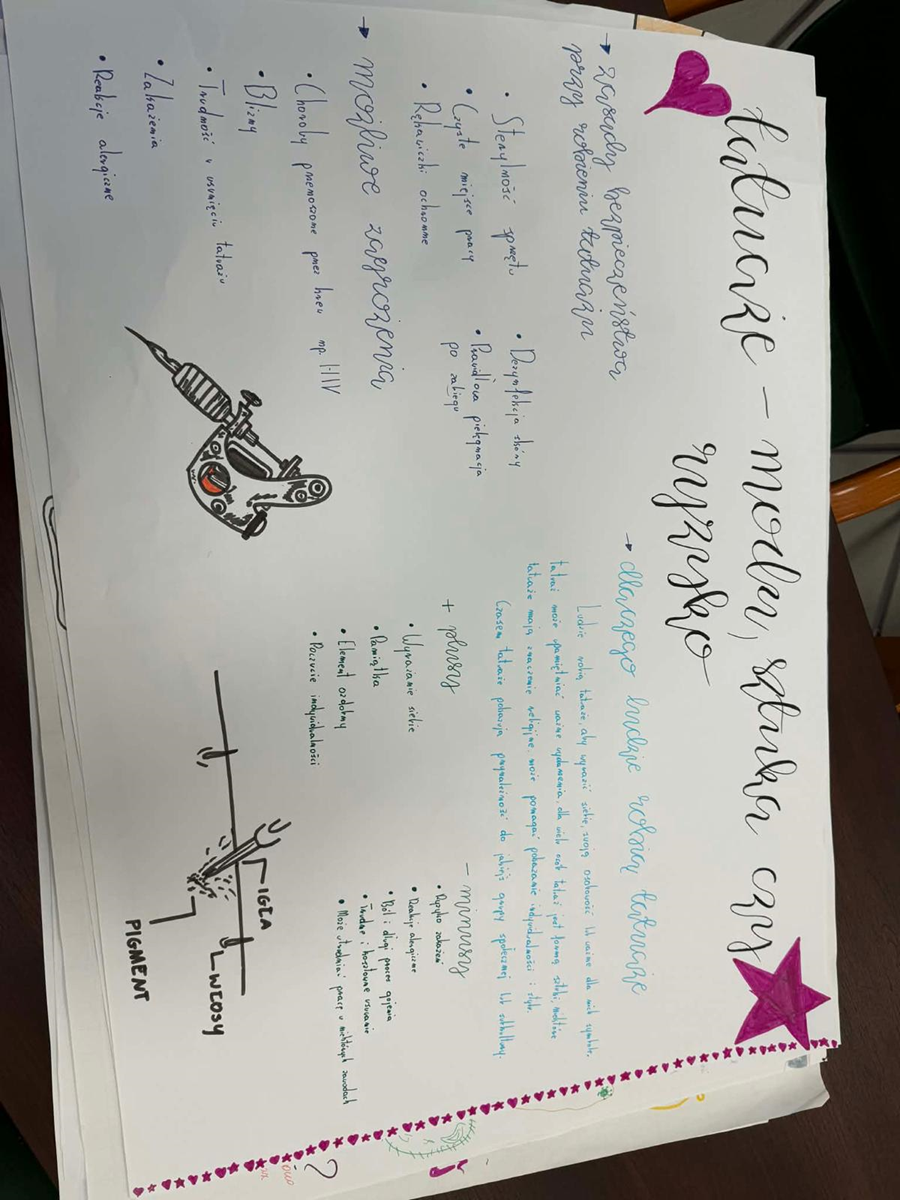 tatuaże – moda, sztuka czy
ryzyko
→ zasady bezpieczeństwa
przy robieniu tatuażu
• Sterylność sprzętu
• Czyste miejsce pracy
• Rękawiczki ochronne
• Dezynfekcja skóry
• Prawidłowa pielęgnacja
po zabiegu
→ możliwe zagrożenia
• Choroby przenoszone przez krew np. HIV
• Blizny
• Trudność w usunięciu tatuażu
• Zakażenia
• Reakcje alergiczne
→ dlaczego ludzie robią tatuaże
Ludzie robią tatuaże, aby wyrazić siebie, swoją osobowość lub ważne dla nich symbole.
tatuaż może upamiętniać ważne wydarzenia, dla wielu osób tatuaż jest formą sztuki, niektóre
tatuaże mają znaczenie religijne, może pomagać pokazanie indywidualności i stylu.
Czasem tatuaże pokazują przynależność do jakiejś grupy społecznej lub subkultury.
+ plusy
• Wyrażanie siebie
• Pamiątka
• Element ozdobny
• Poczucie indywidualności
– minusy
• Ryzyko zakażeń
• Reakcje alergiczne
• Ból i długi proces gojenia
• Trudne i kosztowne usuwanie
• Może utrudniać pracę w niektórych zawodach
IGŁA
WŁOSY
PIGMENT